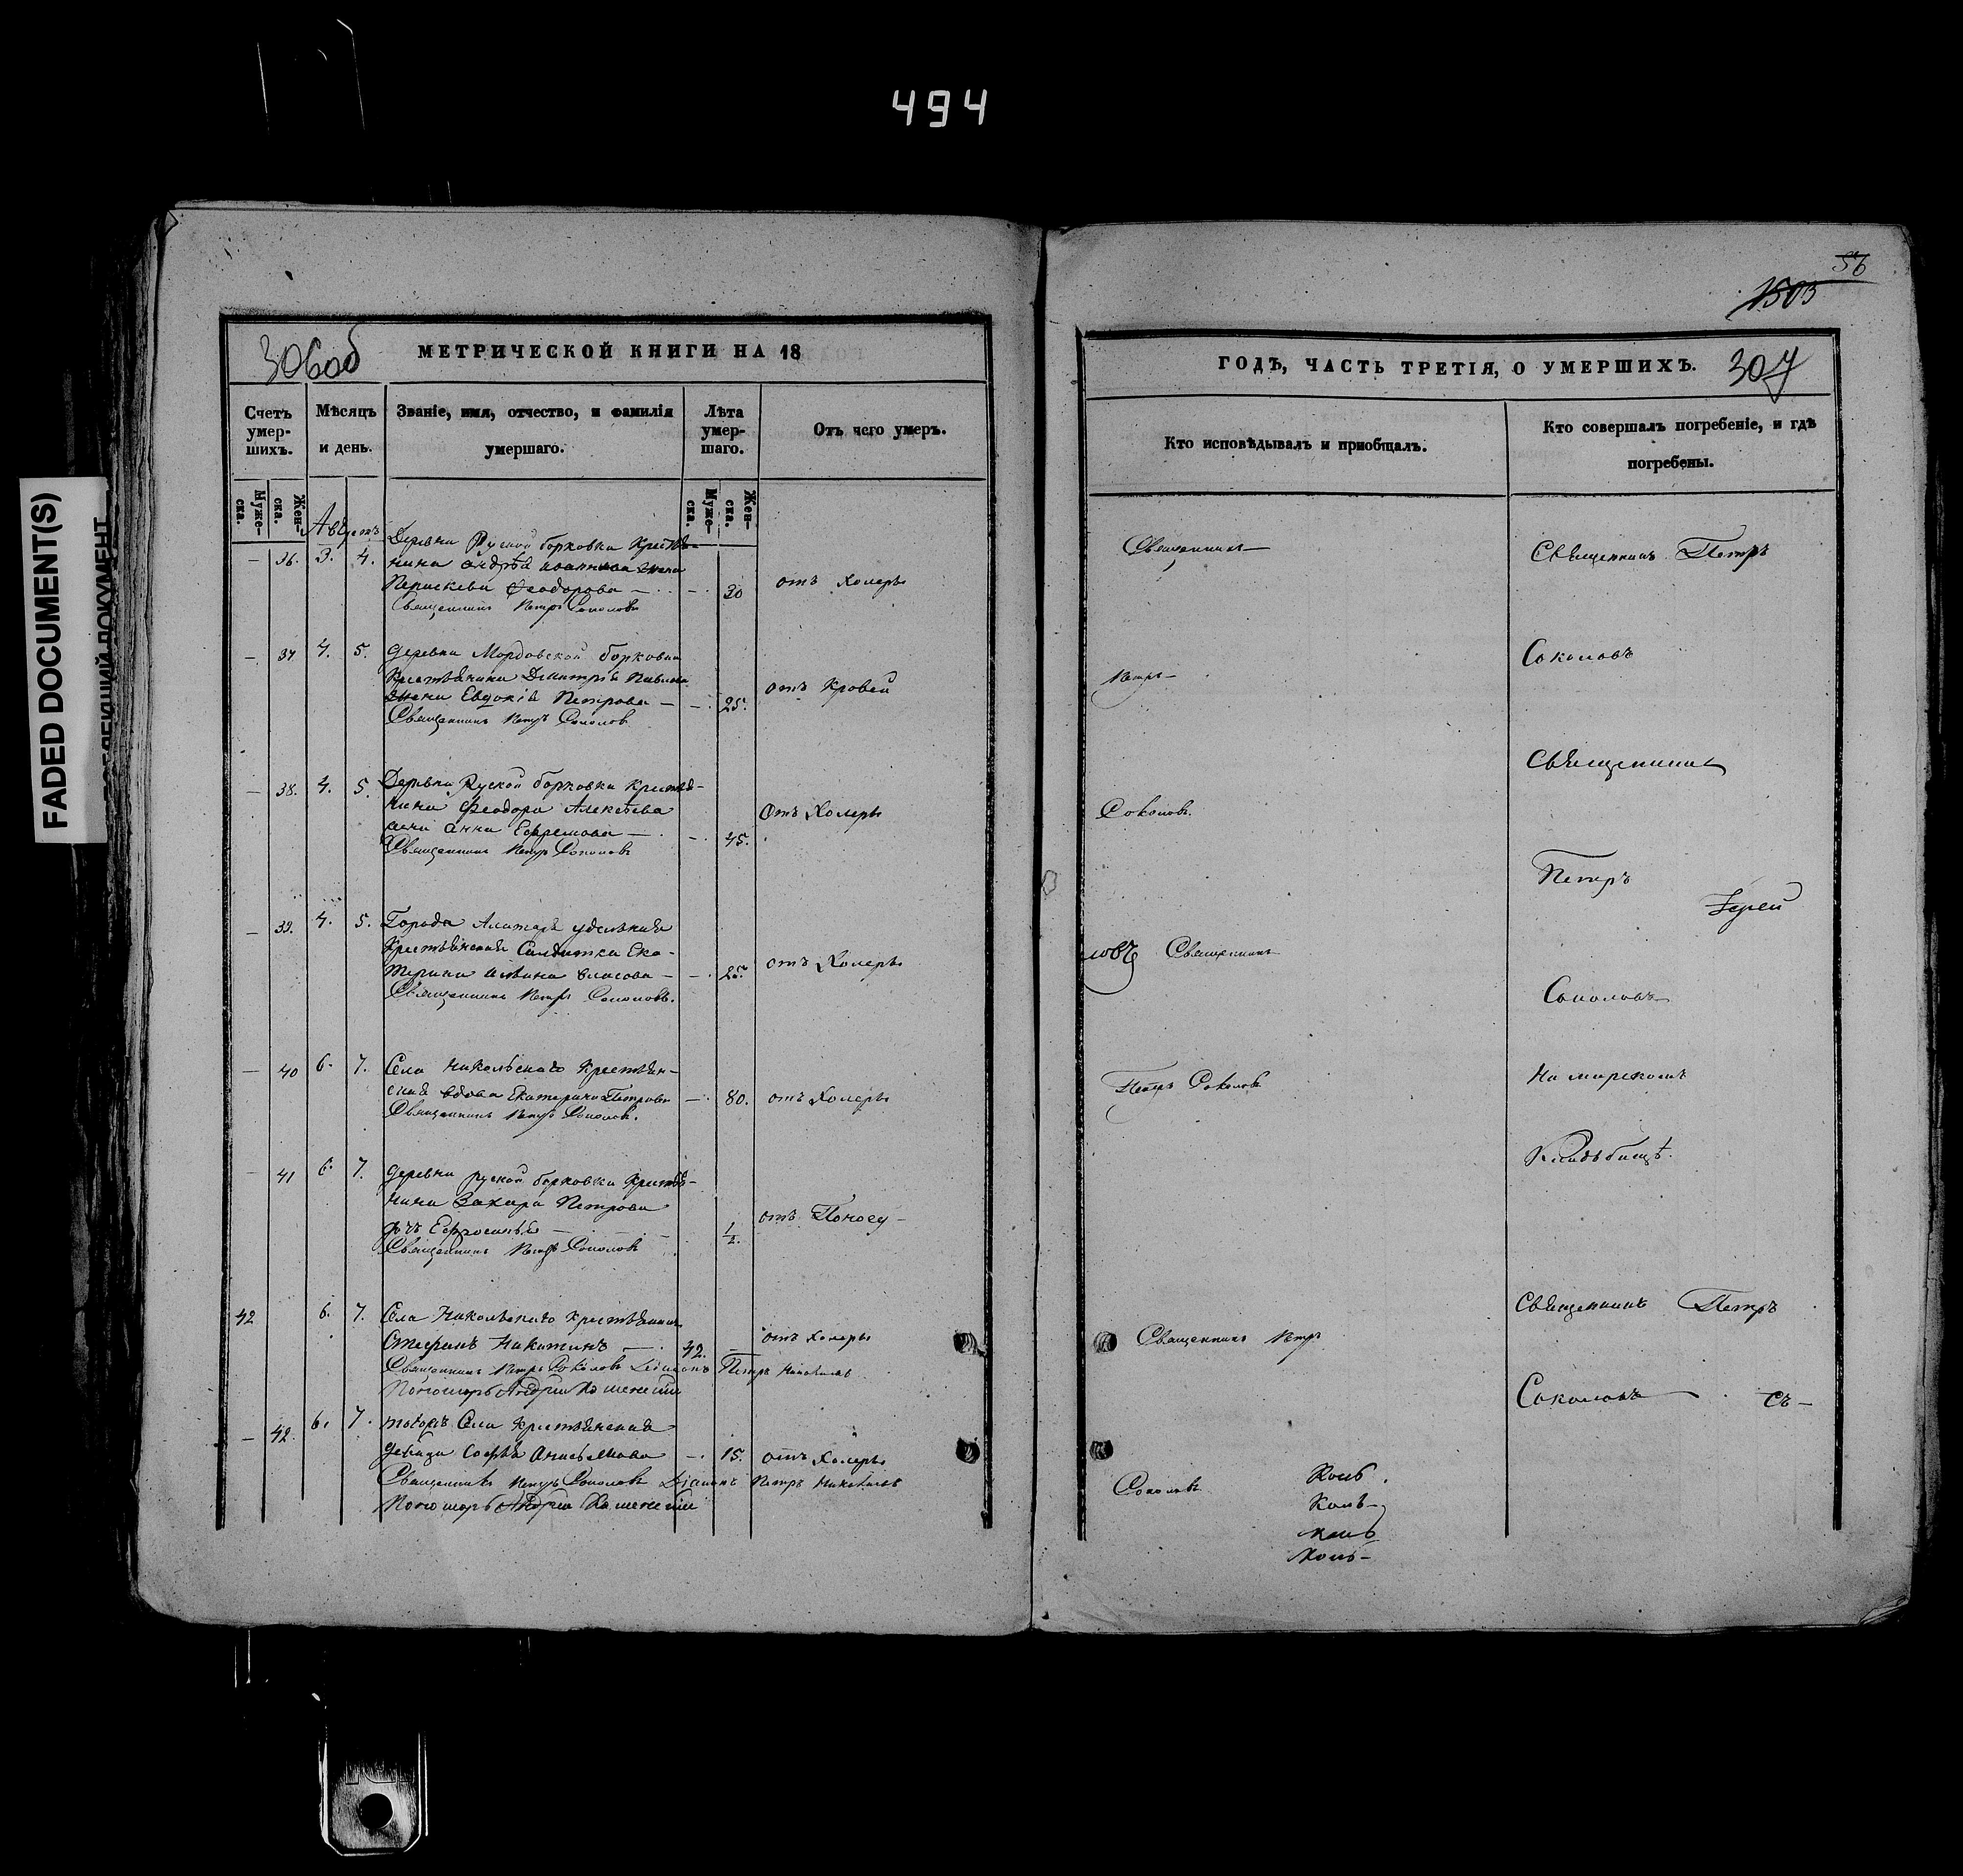 494
FADED DOCUMENT(S)
306об
МЕТРИЧЕСКОЙ КНИГИ НА 18
Счетъ умер-шихъ.
Мѣсяцъ и день.
Званіе, имя, отчество, и фамилія умершаго.
Лѣта умер-шаго.
Отъ чего умеръ.
Муже-ска.
Жен-ска.
Муже-ска.
Жен-ска.
Августъ
— 36. 3. 4. Деревни Руской борковки Крестья-
нина Андрѣя Иванова жена
Параскева Феодорова — 30 отъ Холеры
Священникъ Петръ Соколовъ
— 37 4. 5. Деревни Мордовской борковки
Крестьянина Димитрія Павлова
жена Евдокія Петрова — 25. отъ Кровей
Священникъ Петръ Соколов
— 38. 4. 5. Деревни Руской борковки крестья-
нина Феодора Алексѣева
Анна Ефремова — 45. Отъ Холеры
Священникъ Петръ Соколовъ
— 39. 4. 5. Города Алатыря удѣльная
Крестьянская Салдатка Ека-
терина Власова — 25. отъ Холеры
Священникъ Петръ Соколовъ.
— 40 6. 7. Села Никольскаго Крестьян-
ская вдова Екатерина Петрова — 80. отъ Холеры
Священникъ Петръ Соколов.
— 41 6. 7. Деревни руской борковки крестья-
нина Захара Петрова
дочь Ефросинья — 1/2. отъ Поносу —
Священникъ Петръ Соколовъ
42 6. 7. Села Никольскаго крестьянинъ
Стефанъ Никитинъ — 42. — отъ холеры
Священникъ Петръ Соколовъ Діаконъ Петръ
Пономарь Андрей
— 42. 6. 7. тогожъ Села Крестьянская
девица Софья — 15. отъ Холеры
Священникъ Петръ Соколовъ Діаконъ Петръ
Пономарь Андрей
56
1503
ГОДЪ, ЧАСТЬ ТРЕТІЯ, О УМЕРШИХЪ.
307
Кто исповѣдывалъ и пріобщалъ.
Кто совершалъ погребеніе, и гдѣ погребены.
Священникъ
Священникъ Петръ
Петръ
Соколовъ
Священникъ
Соколовъ.
Петръ
Іерей
ловъ Священникъ
Соколовъ
Петръ Соколовъ
На мирскомъ
Кладьбищѣ.
Священникъ Петръ
Священникъ Петръ
Соколовъ съ —
Соколовъ